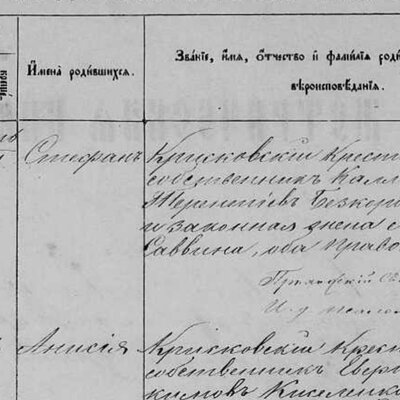 Имена родившихся.
Званіе, имя, отчество и фамилія роди
вѣроисповѣданія.
Стефанъ
Крисковскій Крест
собственникъ Кал
Терентіевъ Безкор
и законная жена
Саввина, оба Право
Анисія
Крисковскій Крест
собственникъ
Киселенко